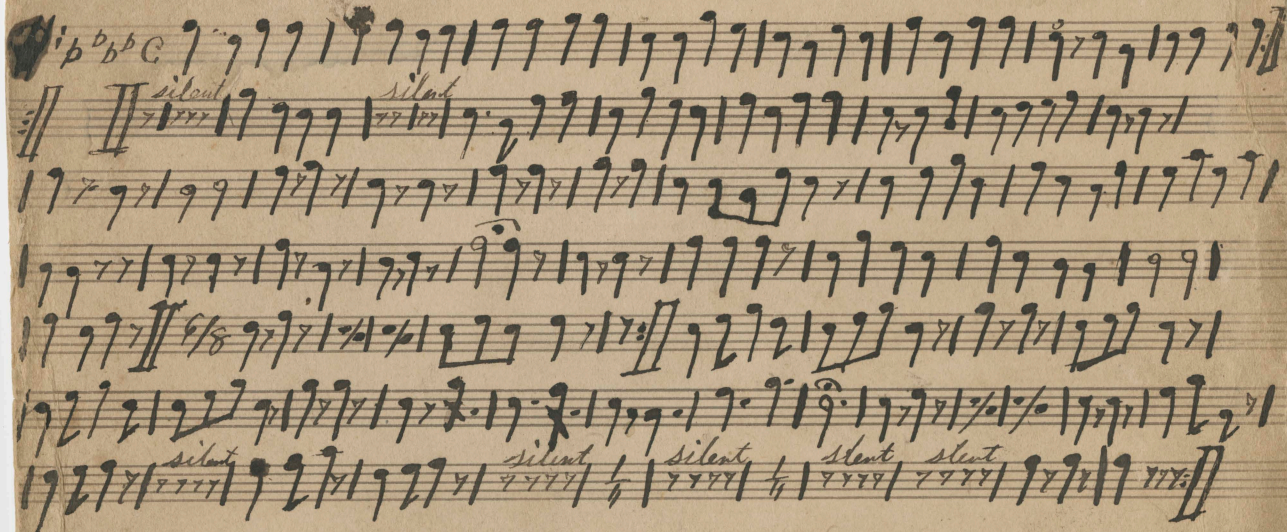 C
silent silent
6/8
silent silent silent silent silent